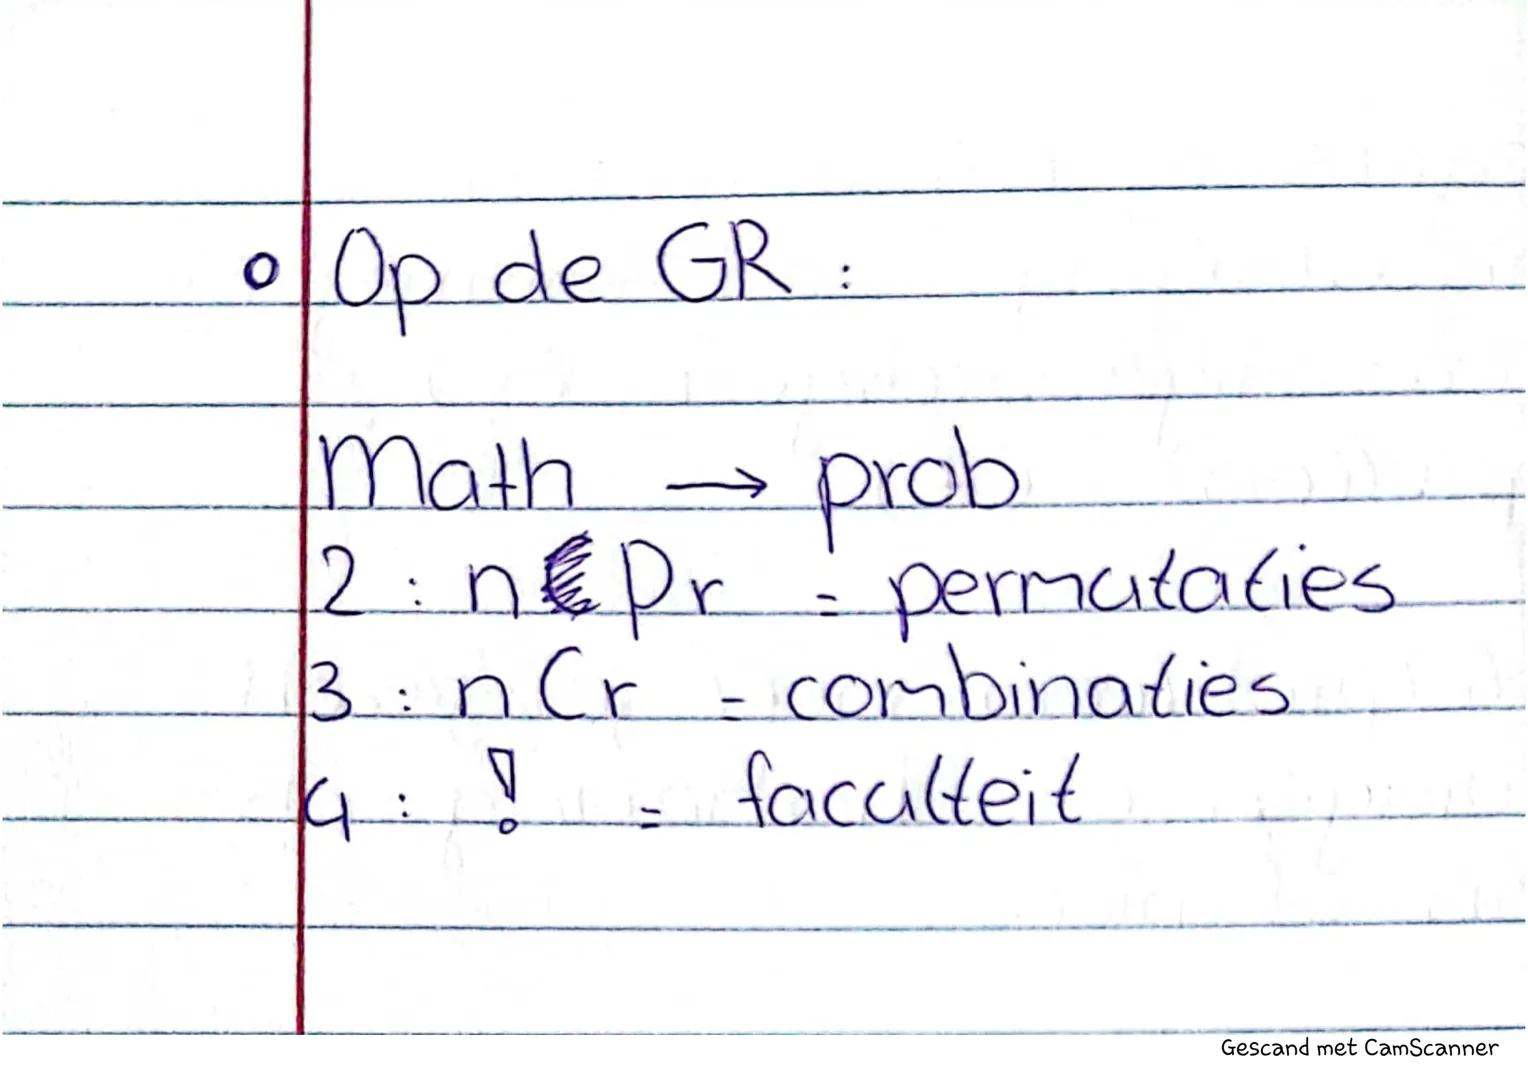 o Op de GR :
Math → prob
2 : n Pr = permutaties
3 : n Cr = combinaties
4 : ! = faculteit
Gescand met CamScanner